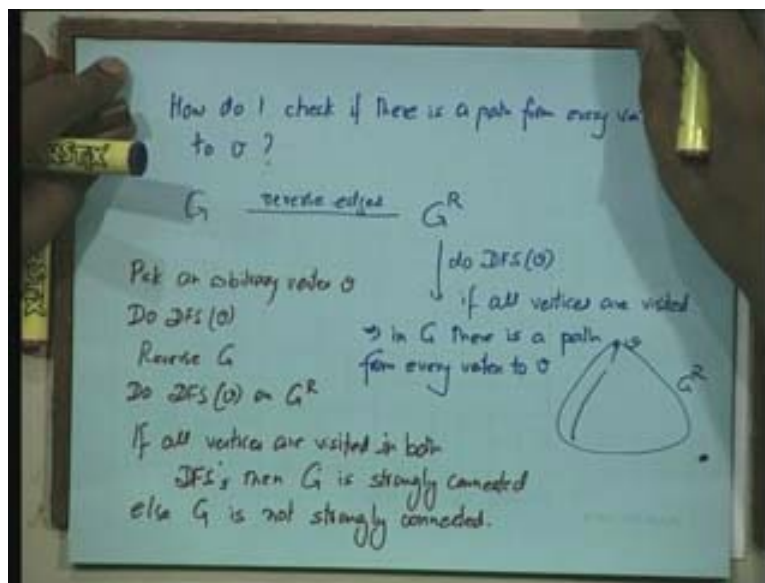 How do I check if there is a path from every
to v?
G reverse edges G^R
do DFS(v)
if all vertices are visited
⇒ in G there is a path
from every vertex to v
v
G^R
Pick an arbitrary vertex v
Do DFS(v)
Reverse G
Do DFS(v) on G^R
If all vertices are visited in both
DFS's then G is strongly connected
else G is not strongly connected.